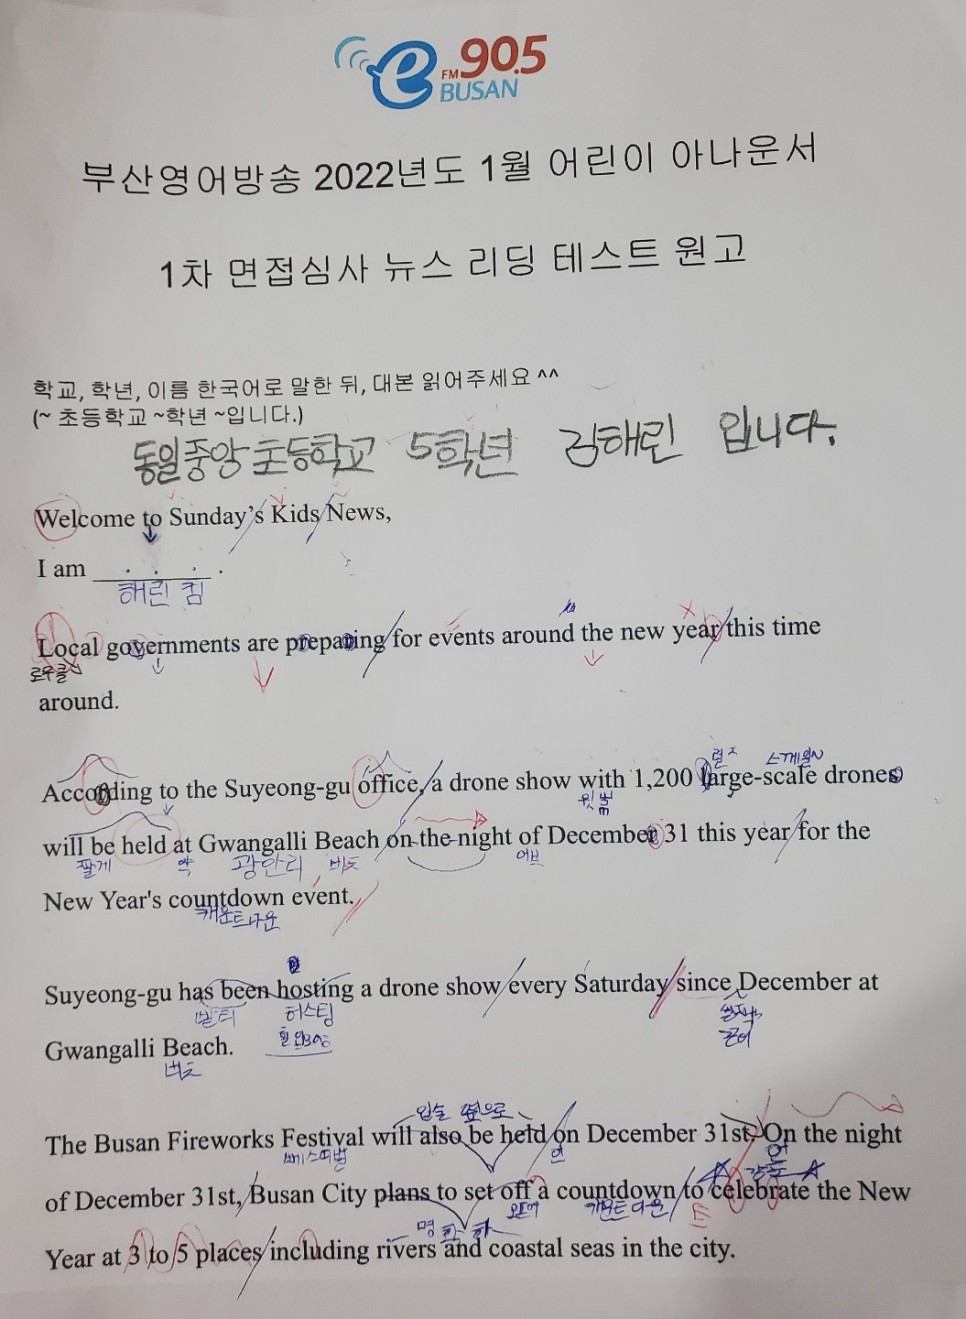 e FM 90.5
BUSAN
부산영어방송 2022년도 1월 어린이 아나운서
1차 면접심사 뉴스 리딩 테스트 원고
학교, 학년, 이름 한국어로 말한 뒤, 대본 읽어주세요 ^^
(~ 초등학교 ~학년 ~입니다.)
동일중앙초등학교 5학년 김해린 입니다.
Welcome to Sunday's Kids News,
I am ___________ .
해린 킴
Local governments are preparing for events around the new year this time
로우클
around.
렬지 스께일
According to the Suyeong-gu office, a drone show with 1,200 large-scale drones
윗
will be held at Gwangalli Beach on the night of December 31 this year for the
광안리 비츠 어브
New Year's countdown event.
캐운트다운
Suyeong-gu has been hosting a drone show every Saturday since December at
허스팅
Gwangalli Beach.
비츠
입술 옆으로
The Busan Fireworks Festival will also be held on December 31st. On the night
언
of December 31st, Busan City plans to set off a countdown to celebrate the New
카운트다운
Year at 3 to 5 places including rivers and coastal seas in the city.